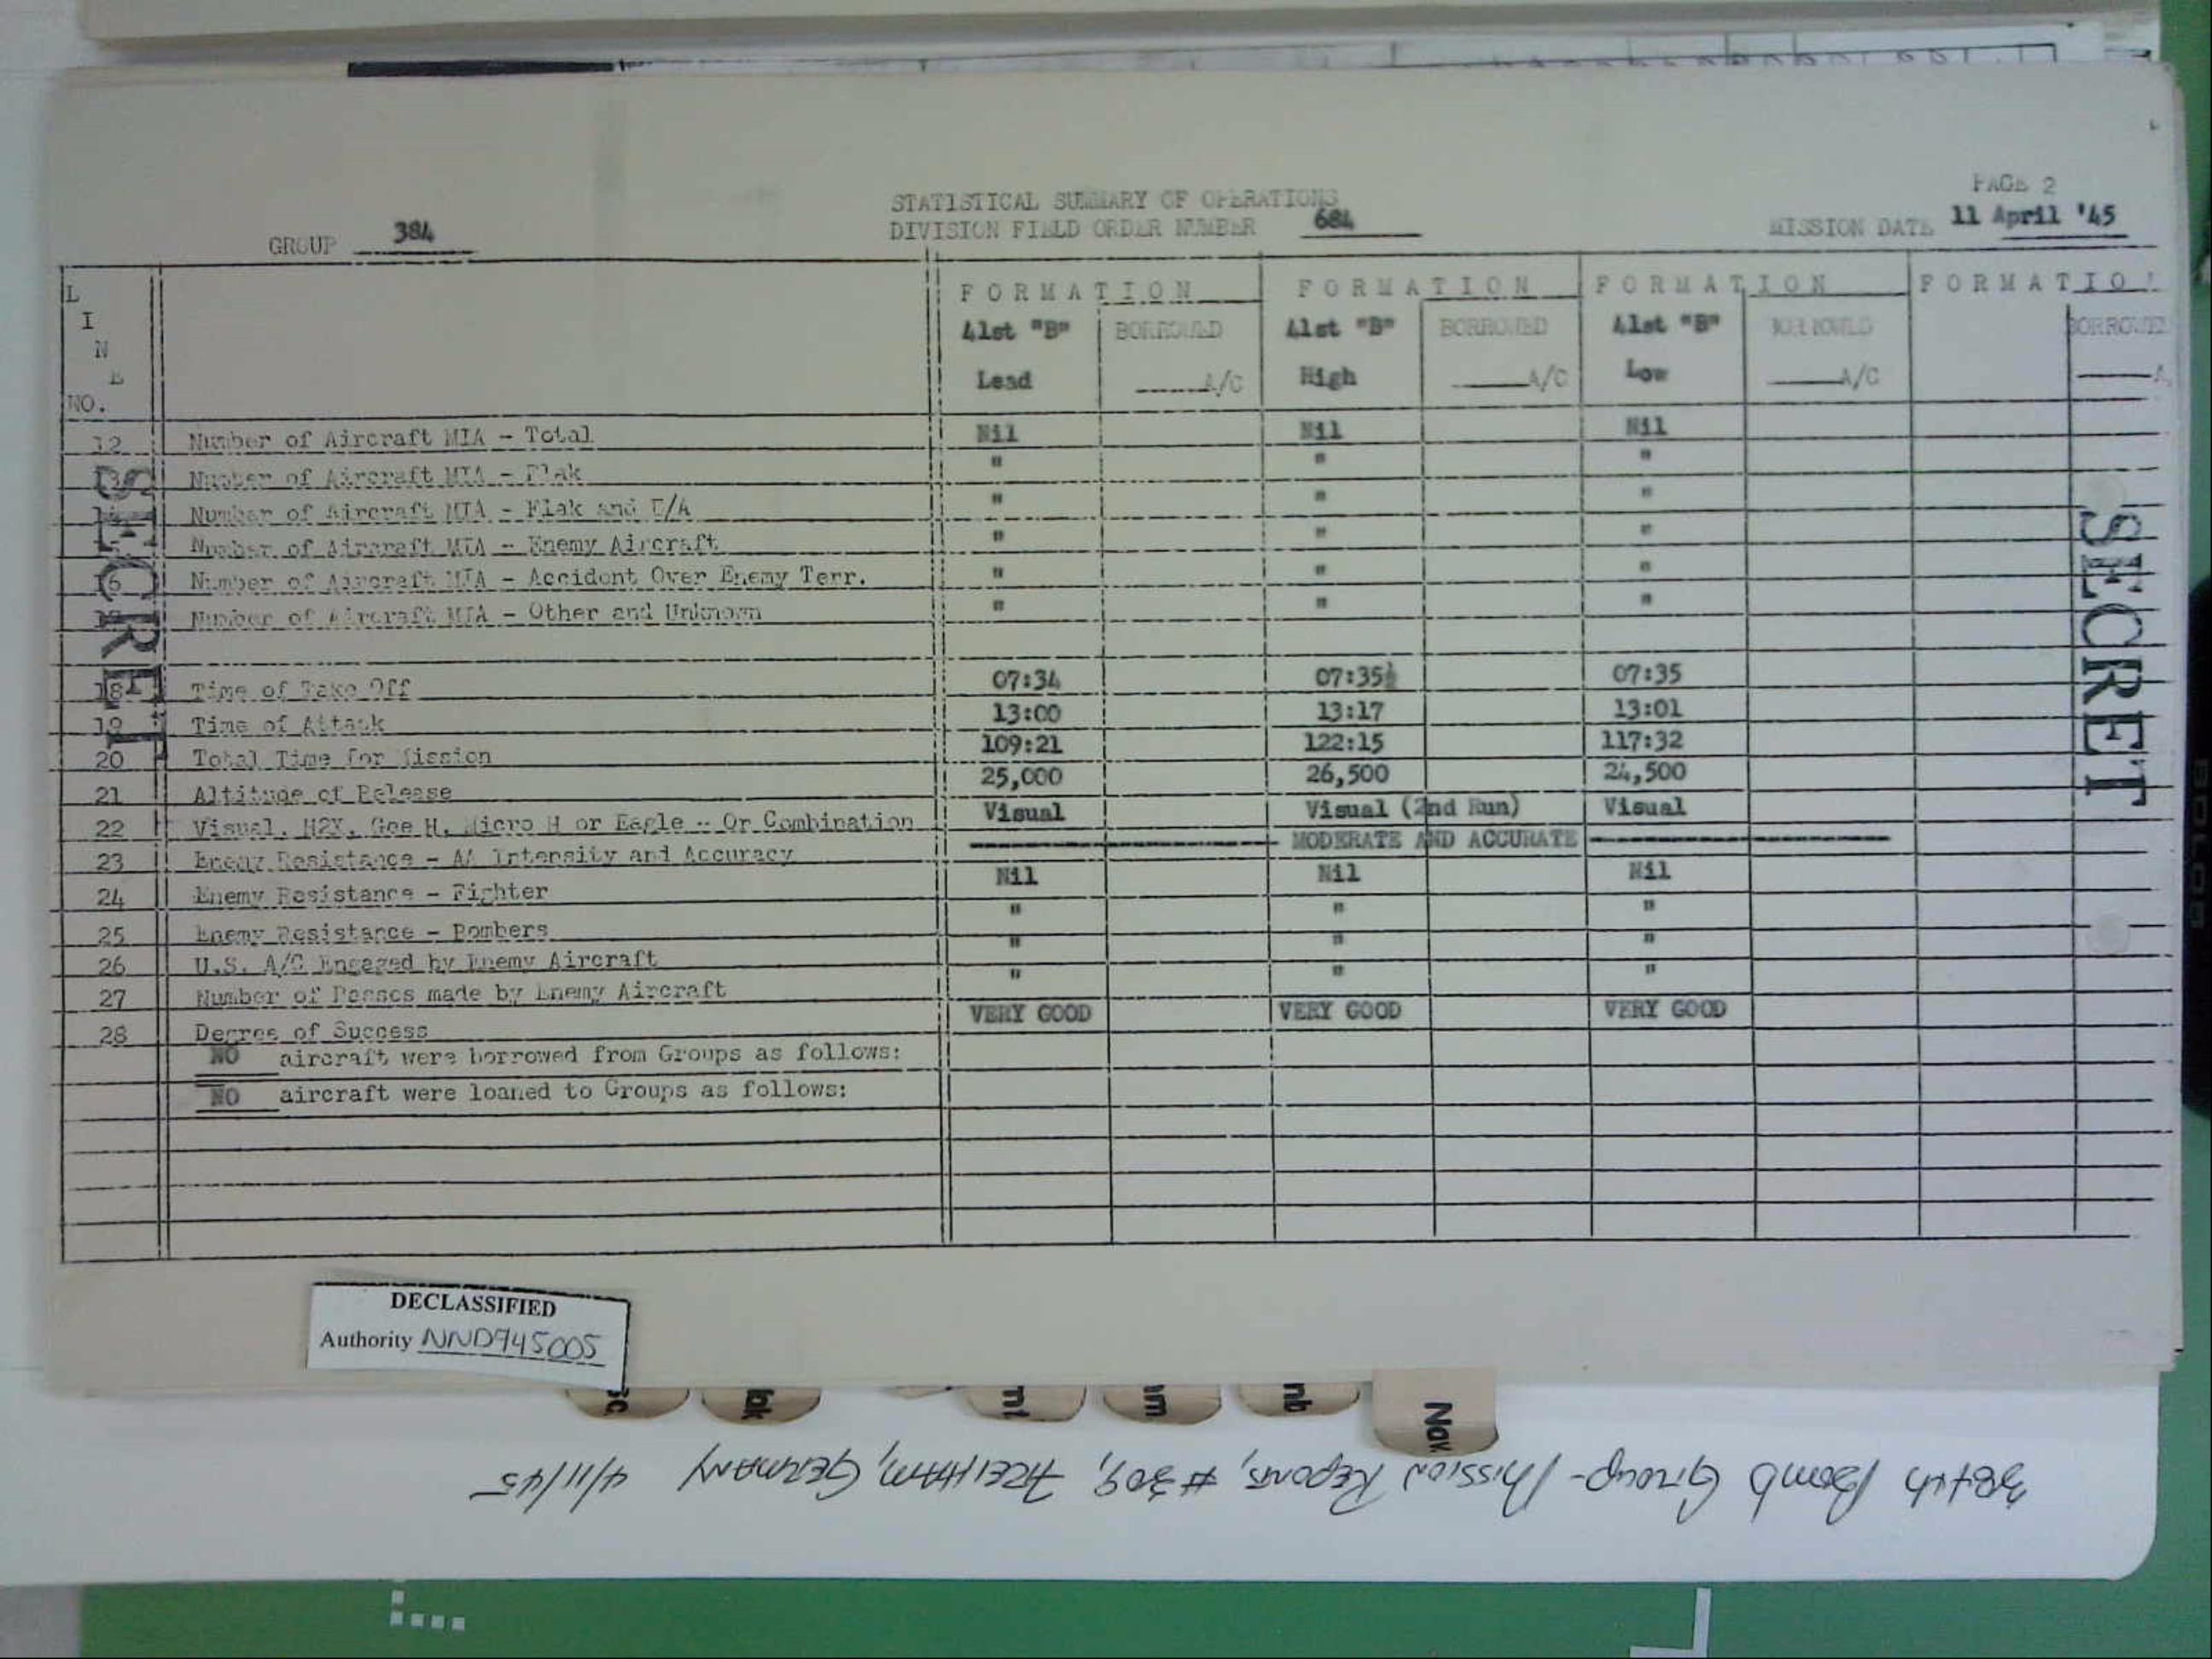 PAGE 2
STATISTICAL SUMMARY OF OPERATIONS
GROUP 384 DIVISION FIELD ORDER NUMBER 684 MISSION DATE 11 April '45
LINE NO. FORMATION FORMATION FORMATION FORMATIO
41st "B" BORROWED 41st "B" BORROWED 41st "B" BORROWED BORROWED
Lead A/C High A/C Low A/C A
12 Number of Aircraft MIA - Total Nil Nil Nil
13 Number of Aircraft MIA - Flak " " "
Number of Aircraft MIA - Flak and E/A " " "
Number of Aircraft MIA - Enemy Aircraft " " "
16 Number of Aircraft MIA - Accident Over Enemy Terr. " " "
Number of Aircraft MIA - Other and Unknown " " "
18 Time of Take Off 07:34 07:35½ 07:35
19 Time of Attack 13:00 13:17 13:01
20 Total Time for Mission 109:21 122:15 117:32
21 Altitude of Release 25,000 26,500 24,500
22 Visual, H2X, Gee H, Micro H or Eagle - Or Combination Visual Visual (2nd Run) Visual
23 Enemy Resistance - AA Intensity and Accuracy MODERATE AND ACCURATE
24 Enemy Resistance - Fighter Nil Nil Nil
25 Enemy Resistance - Bombers " " "
26 U.S. A/C Engaged by Enemy Aircraft " " "
27 Number of Passes made by Enemy Aircraft " " "
28 Degree of Success VERY GOOD VERY GOOD VERY GOOD
NO aircraft were borrowed from Groups as follows:
NO aircraft were loaned to Groups as follows:
SECRET
SECRET
DECLASSIFIED
Authority NND945005
Nov
384th Bomb Group - Mission Reports, #309, FREIHAM, GERMANY 4/11/45